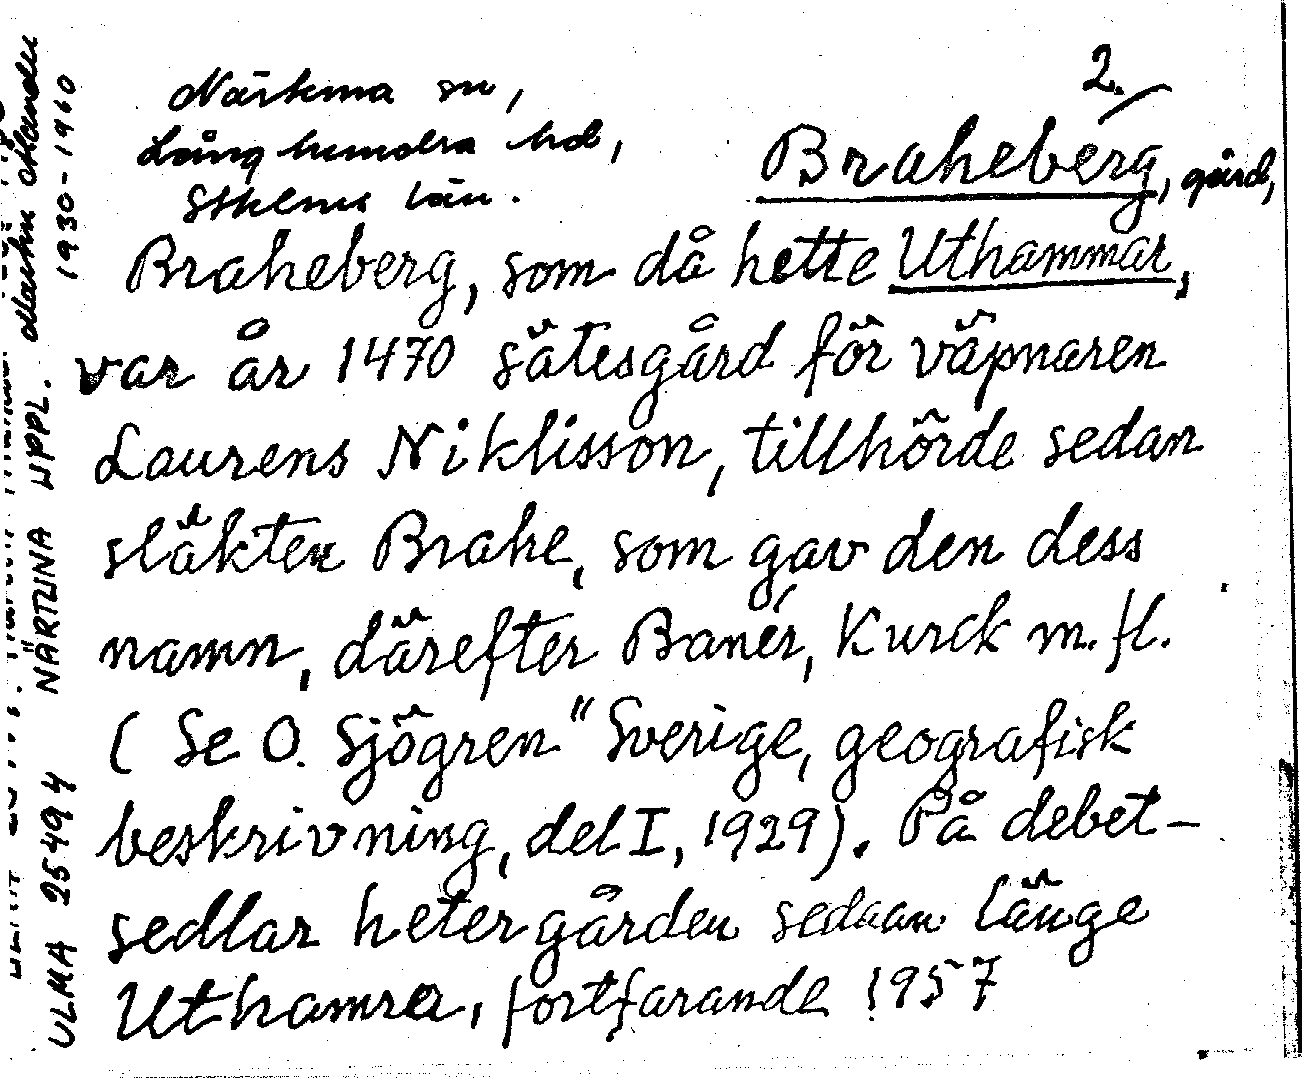 2.
Närtuna sn,
Långhundra hd,
Sthlms län.
Braheberg, gård,
Braheberg, som då hette Uthammar,
var år 1470 sätesgård för väpnaren
Laurens Niklisson, tillhörde sedan
släkten Brahe, som gav den dess
namn, därefter Banér, Kurck m. fl.
( Se O. Sjögren "Sverige, geografisk
beskrivning, del I, 1929). På debet-
sedlar heter gården sedaan länge
Uthamra, fortfarande 1957
ULMA 25494 NÄRTUNA UPPL. 1930-1960